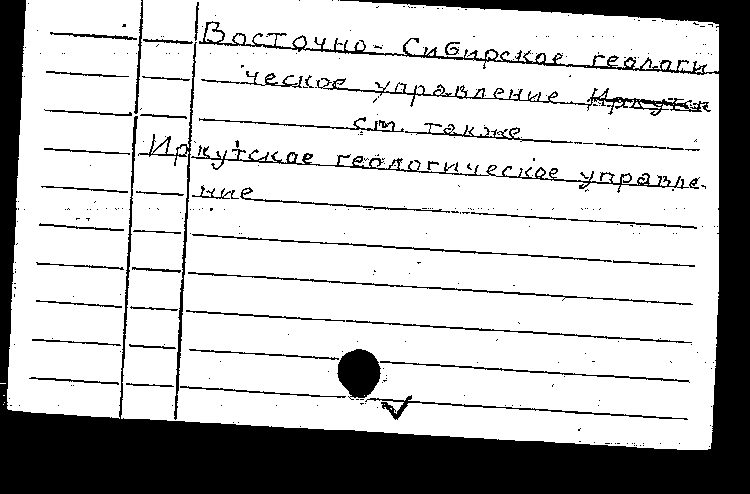 Восточно-Сибирское геологи
ческое управление Иркутск
см. также
Иркутское геологическое управле-
ние